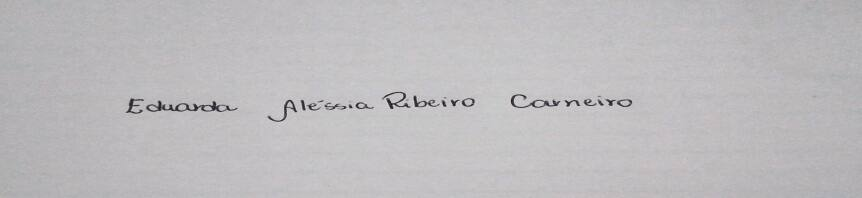 Eduarda Aléssia Ribeiro Carneiro